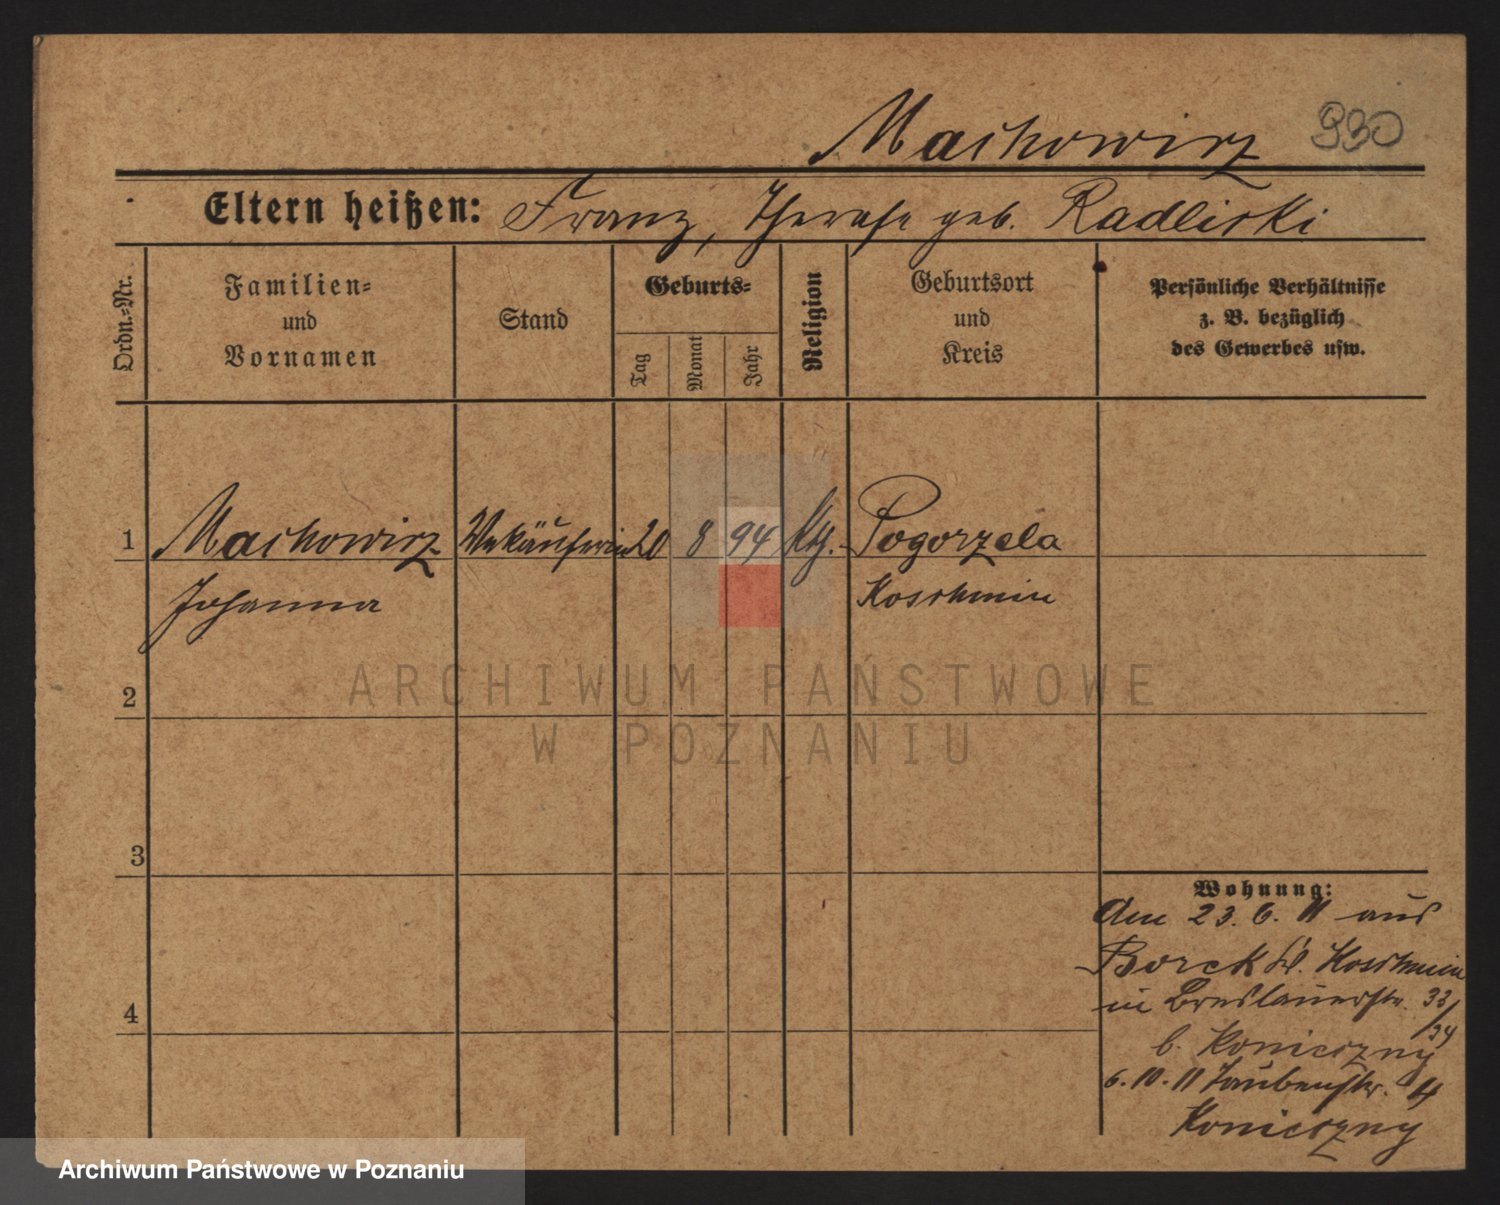 Machowicz 930
Eltern heißen: Franz, Therese geb. Radliski
Ordn.-Nr.
Familien-
und
Vornamen
Stand
Geburts-
Tag
Monat
Jahr
Religion
Geburtsort
und
Kreis
Persönliche Verhältnisse
z. B. bezüglich
des Gewerbes usw.
1 Machowicz Verkäuferin 20 8 94 Kth. Pogorzela
Johanna Koschmin
2
ARCHIWUM PAŃSTWOWE
W POZNANIU
3
Wohnung:
Am 23. 6. 11 aus
Borek Kr. Koschmin
in Breslauerstr. 33/
34
b. Konieczny
6. 10. 11 Taubenstr. 4
4
Konieczny
Archiwum Państwowe w Poznaniu